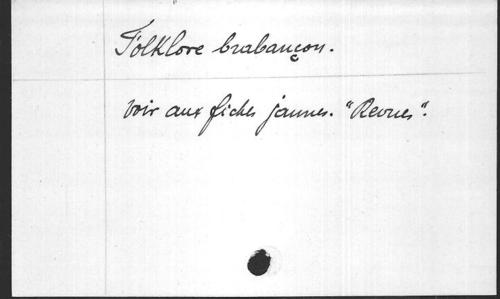 Folklore brabançon.
Voir aux fiches jaunes. "Revues".